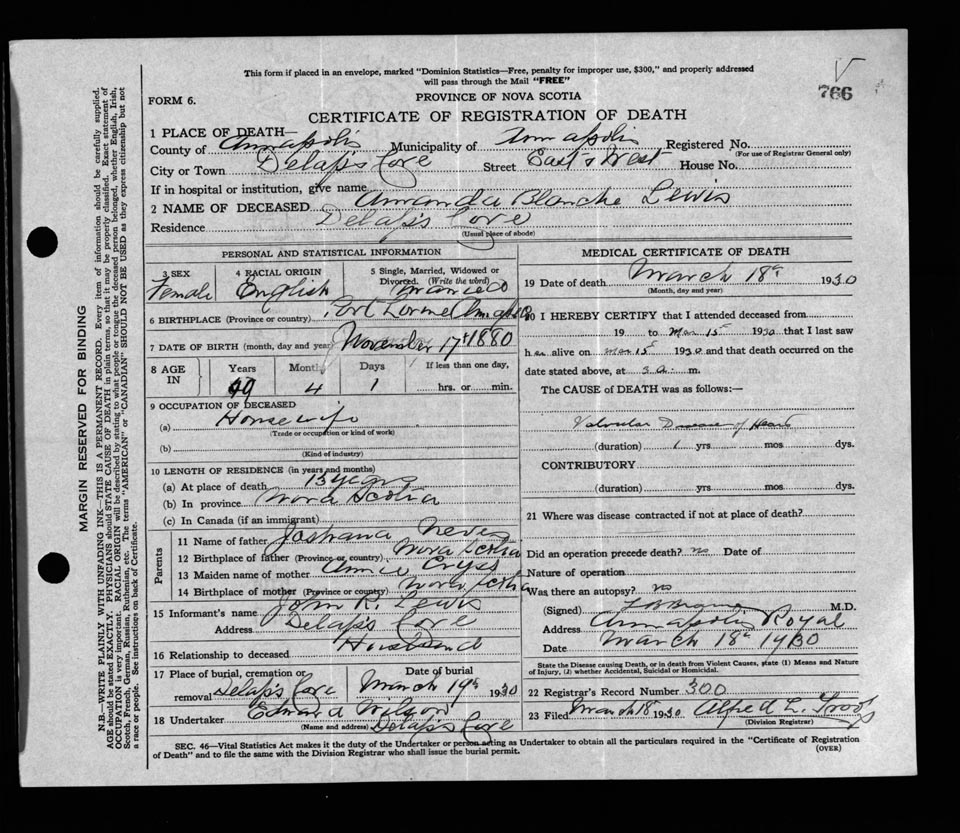 This form if placed in an envelope, marked "Dominion Statistics—Free, penalty for improper use, $300," and properly addressed
will pass through the Mail "FREE"
V
766
FORM 6.
PROVINCE OF NOVA SCOTIA
CERTIFICATE OF REGISTRATION OF DEATH
1 PLACE OF DEATH—
County of Annapolis Municipality of Annapolis Registered No.
(For use of Registrar General only)
City or Town Delap's Cove Street East & West House No.
If in hospital or institution, give name
2 NAME OF DECEASED Amanda Blanche Lewis
Residence Delap's Cove
(Usual place of abode)
PERSONAL AND STATISTICAL INFORMATION
3 SEX
Female
4 RACIAL ORIGIN
English
5 Single, Married, Widowed or
Divorced. (Write the word)
Married
6 BIRTHPLACE (Province or country) Port Lorne
7 DATE OF BIRTH (month, day and year) November 17th 1880
8 AGE IN
Years Months Days If less than one day,
49 4 1 hrs. or min.
9 OCCUPATION OF DECEASED
(a) Housewife
(Trade or occupation or kind of work)
(b)
(Kind of industry)
10 LENGTH OF RESIDENCE (in years and months)
(a) At place of death 15 years
(b) In province Nova Scotia
(c) In Canada (if an immigrant)
Parents
11 Name of father
12 Birthplace of father (Province or country) Nova Scotia
13 Maiden name of mother Annie
14 Birthplace of mother (Province or country) Nova Scotia
15 Informant's name John R. Lewis
Address Delap's Cove
16 Relationship to deceased Husband
17 Place of burial, cremation or Date of burial
removal Delap's Cove March 19th 1930
18 Undertaker Edward Wilson
(Name and address) Delap's Cove
MEDICAL CERTIFICATE OF DEATH
19 Date of death March 18th 1930
(Month, day and year)
20 I HEREBY CERTIFY that I attended deceased from
19 to Mar 15th 1930 that I last saw
her alive on Mar 15th 1930 and that death occurred on
date stated above, at 3 a. m.
The CAUSE of DEATH was as follows:—
Valvular Disease of Heart
(duration) 1 yrs mos dys.
CONTRIBUTORY
(duration) yrs mos dys.
21 Where was disease contracted if not at place of death?
Did an operation precede death? no Date of
Nature of operation
Was there an autopsy? no
(Signed) M.D.
Address Annapolis Royal
Date March 18th 1930
State the Disease causing Death, or in death from Violent Causes, state (1) Means and Nature
of Injury, (2) whether Accidental, Suicidal or Homicidal.
22 Registrar's Record Number 300
23 Filed March 18 1930 Alfred L.
(Division Registrar)
SEC. 46—Vital Statistics Act makes it the duty of the Undertaker or person acting as Undertaker to obtain all the particulars required in the "Certificate of Registration
of Death" and to file the same with the Division Registrar who shall issue the burial permit.
(OVER)
MARGIN RESERVED FOR BINDING
N.B.—WRITE PLAINLY WITH UNFADING INK—THIS IS A PERMANENT RECORD. Every item of information should be carefully supplied.
AGE should be stated EXACTLY. PHYSICIANS should STATE CAUSE OF DEATH in plain terms, so that it may be properly classified. Exact statement of
OCCUPATION is very important. RACIAL ORIGIN will be described by stating to what people or tongue the deceased person belonged, whether English, Irish,
Scotch, French, German, Russian, Ruthenian, etc. The terms "AMERICAN" or "CANADIAN" SHOULD NOT BE USED as they express citizenship but not
a race or people. See instructions on back of Certificate.